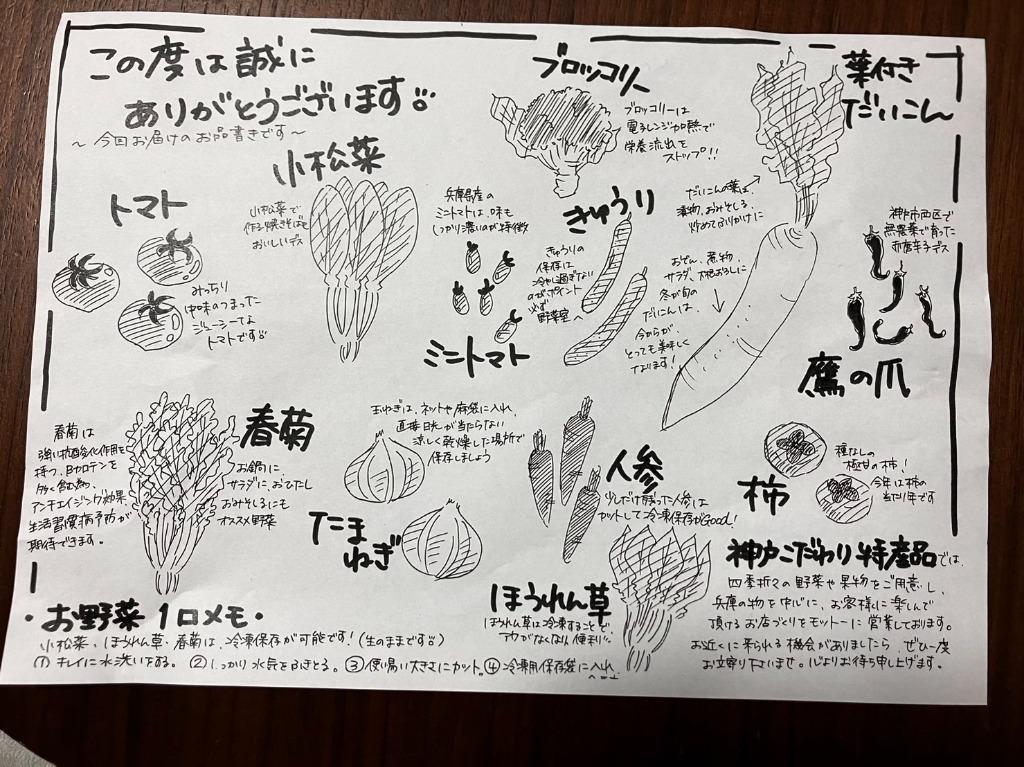 この度は誠に
ありがとうございます
～今回お届けのお品書きです～
ブロッコリー
ブロッコリーは
電子レンジ加熱で
栄養流出を
ストップ!!
葉付き
だいこん
だいこんの葉は、
漬物、おみそしる、
炒めてふりかけに
おでん、煮物、
サラダ、大根おろしに
冬が旬の
だいこんは、
今からが
とっても美味しく
なります!
小松菜
小松菜で
作る焼きそばも
おいしいデス
トマト
みっちり
中味のつまった
ジューシーでよ
トマトです
兵庫県産の
ミニトマトは、味も
しっかり濃いのが特徴
ミニトマト
きゅうり
きゅうりの
保存は
冷やし過ぎない
のがポイント
必ず
野菜室へ
神戸市西区で
無農薬で育った
赤唐辛子デス
鷹の爪
春菊
春菊は
強い抗酸化作用を
持つ、βカロテンを
多く含む為、
アンチエイジング効果
生活習慣病予防が
期待できます。
お鍋に、
サラダに、おひたし
おみそしるにも
オススメ野菜
玉ねぎは、ネットや麻袋に入れ、
直接日光が当たらない
涼しく乾燥した場所で
保存しましょう
たま
ねぎ
人参
少しだけ残った人参は
カットして冷凍保存がGood!
柿
種なしの
極甘の柿!
今年は柿の
当たり年です
ほうれん草
ほうれん草は冷凍することで、
アクがなくなり便利
神戸こだわり特産品では、
四季折々の野菜や果物をご用意し、
兵庫の物を中心に、お客様に楽しんで
頂けるお店づくりをモットーに営業しております。
お近くに来られる機会がありましたら、ぜひ一度
お立寄り下さいませ。心よりお待ち申し上げます。
・お野菜1口メモ・
小松菜、ほうれん草・春菊は、冷凍保存が可能です!(生のままです)
①キレイに水洗いをする。②しっかり水気をふきとる。③使い易い大きさにカット。④冷凍用保存袋に入れ、